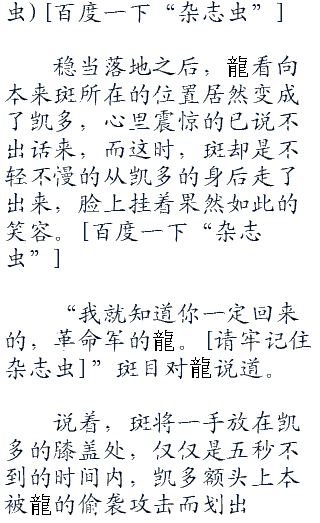 虫)[百度一下“杂志虫”]
稳当落地之后，龍看向
本来斑所在的位置居然变成
了凯多，心里震惊的已说不
出话来，而这时，斑却是不
轻不慢的从凯多的身后走了
出来，脸上挂着果然如此的
笑容。[百度一下“杂志
虫”]
“我就知道你一定回来
的，革命军的龍。[请牢记住
杂志虫]”斑目对龍说道。
说着，斑将一手放在凯
多的膝盖处，仅仅是五秒不
到的时间内，凯多额头上本
被龍的偷袭攻击而划出